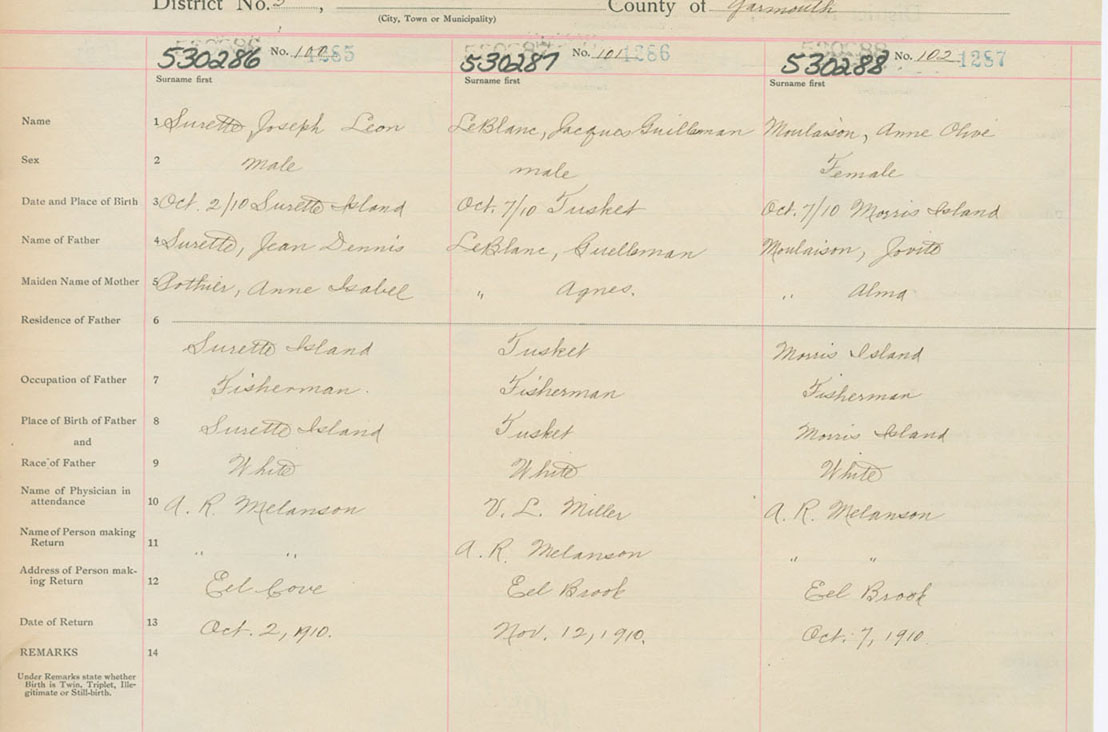 District No. 3, County of Yarmouth
(City, Town or Municipality)
530286 No. 100 1285 530287 No. 101 1286 530288 No. 102 1287
Surname first Surname first Surname first
Name 1 Surette, Joseph Leon LeBlanc, Jacques Guilleman Moulaison, Anne Olive
Sex 2 male male Female
Date and Place of Birth 3 Oct. 2/10 Surette Island Oct. 7/10 Tusket Oct. 7/10 Morris Island
Name of Father 4 Surette, Jean Dennis LeBlanc, Guelleman Moulaison, Jovite
Maiden Name of Mother 5 Pothier, Anne Isabel " Agnes. " Alma
Residence of Father 6
Surette Island Tusket Morris Island
Occupation of Father 7 Fisherman. Fisherman Fisherman
Place of Birth of Father 8 Surette Island Tusket Morris Island
and
Race of Father 9 White White White
Name of Physician in
attendance 10 A. R. Melanson V. L. Miller A. R. Melanson
Name of Person making
Return 11 " " A. R. Melanson " "
Address of Person mak-
ing Return 12 Eel Cove Eel Brook Eel Brook
Date of Return 13 Oct. 2, 1910. Nov. 12, 1910. Oct. 7, 1910
REMARKS 14
Under Remarks state whether
Birth is Twin, Triplet, Ille-
gitimate or Still-birth.